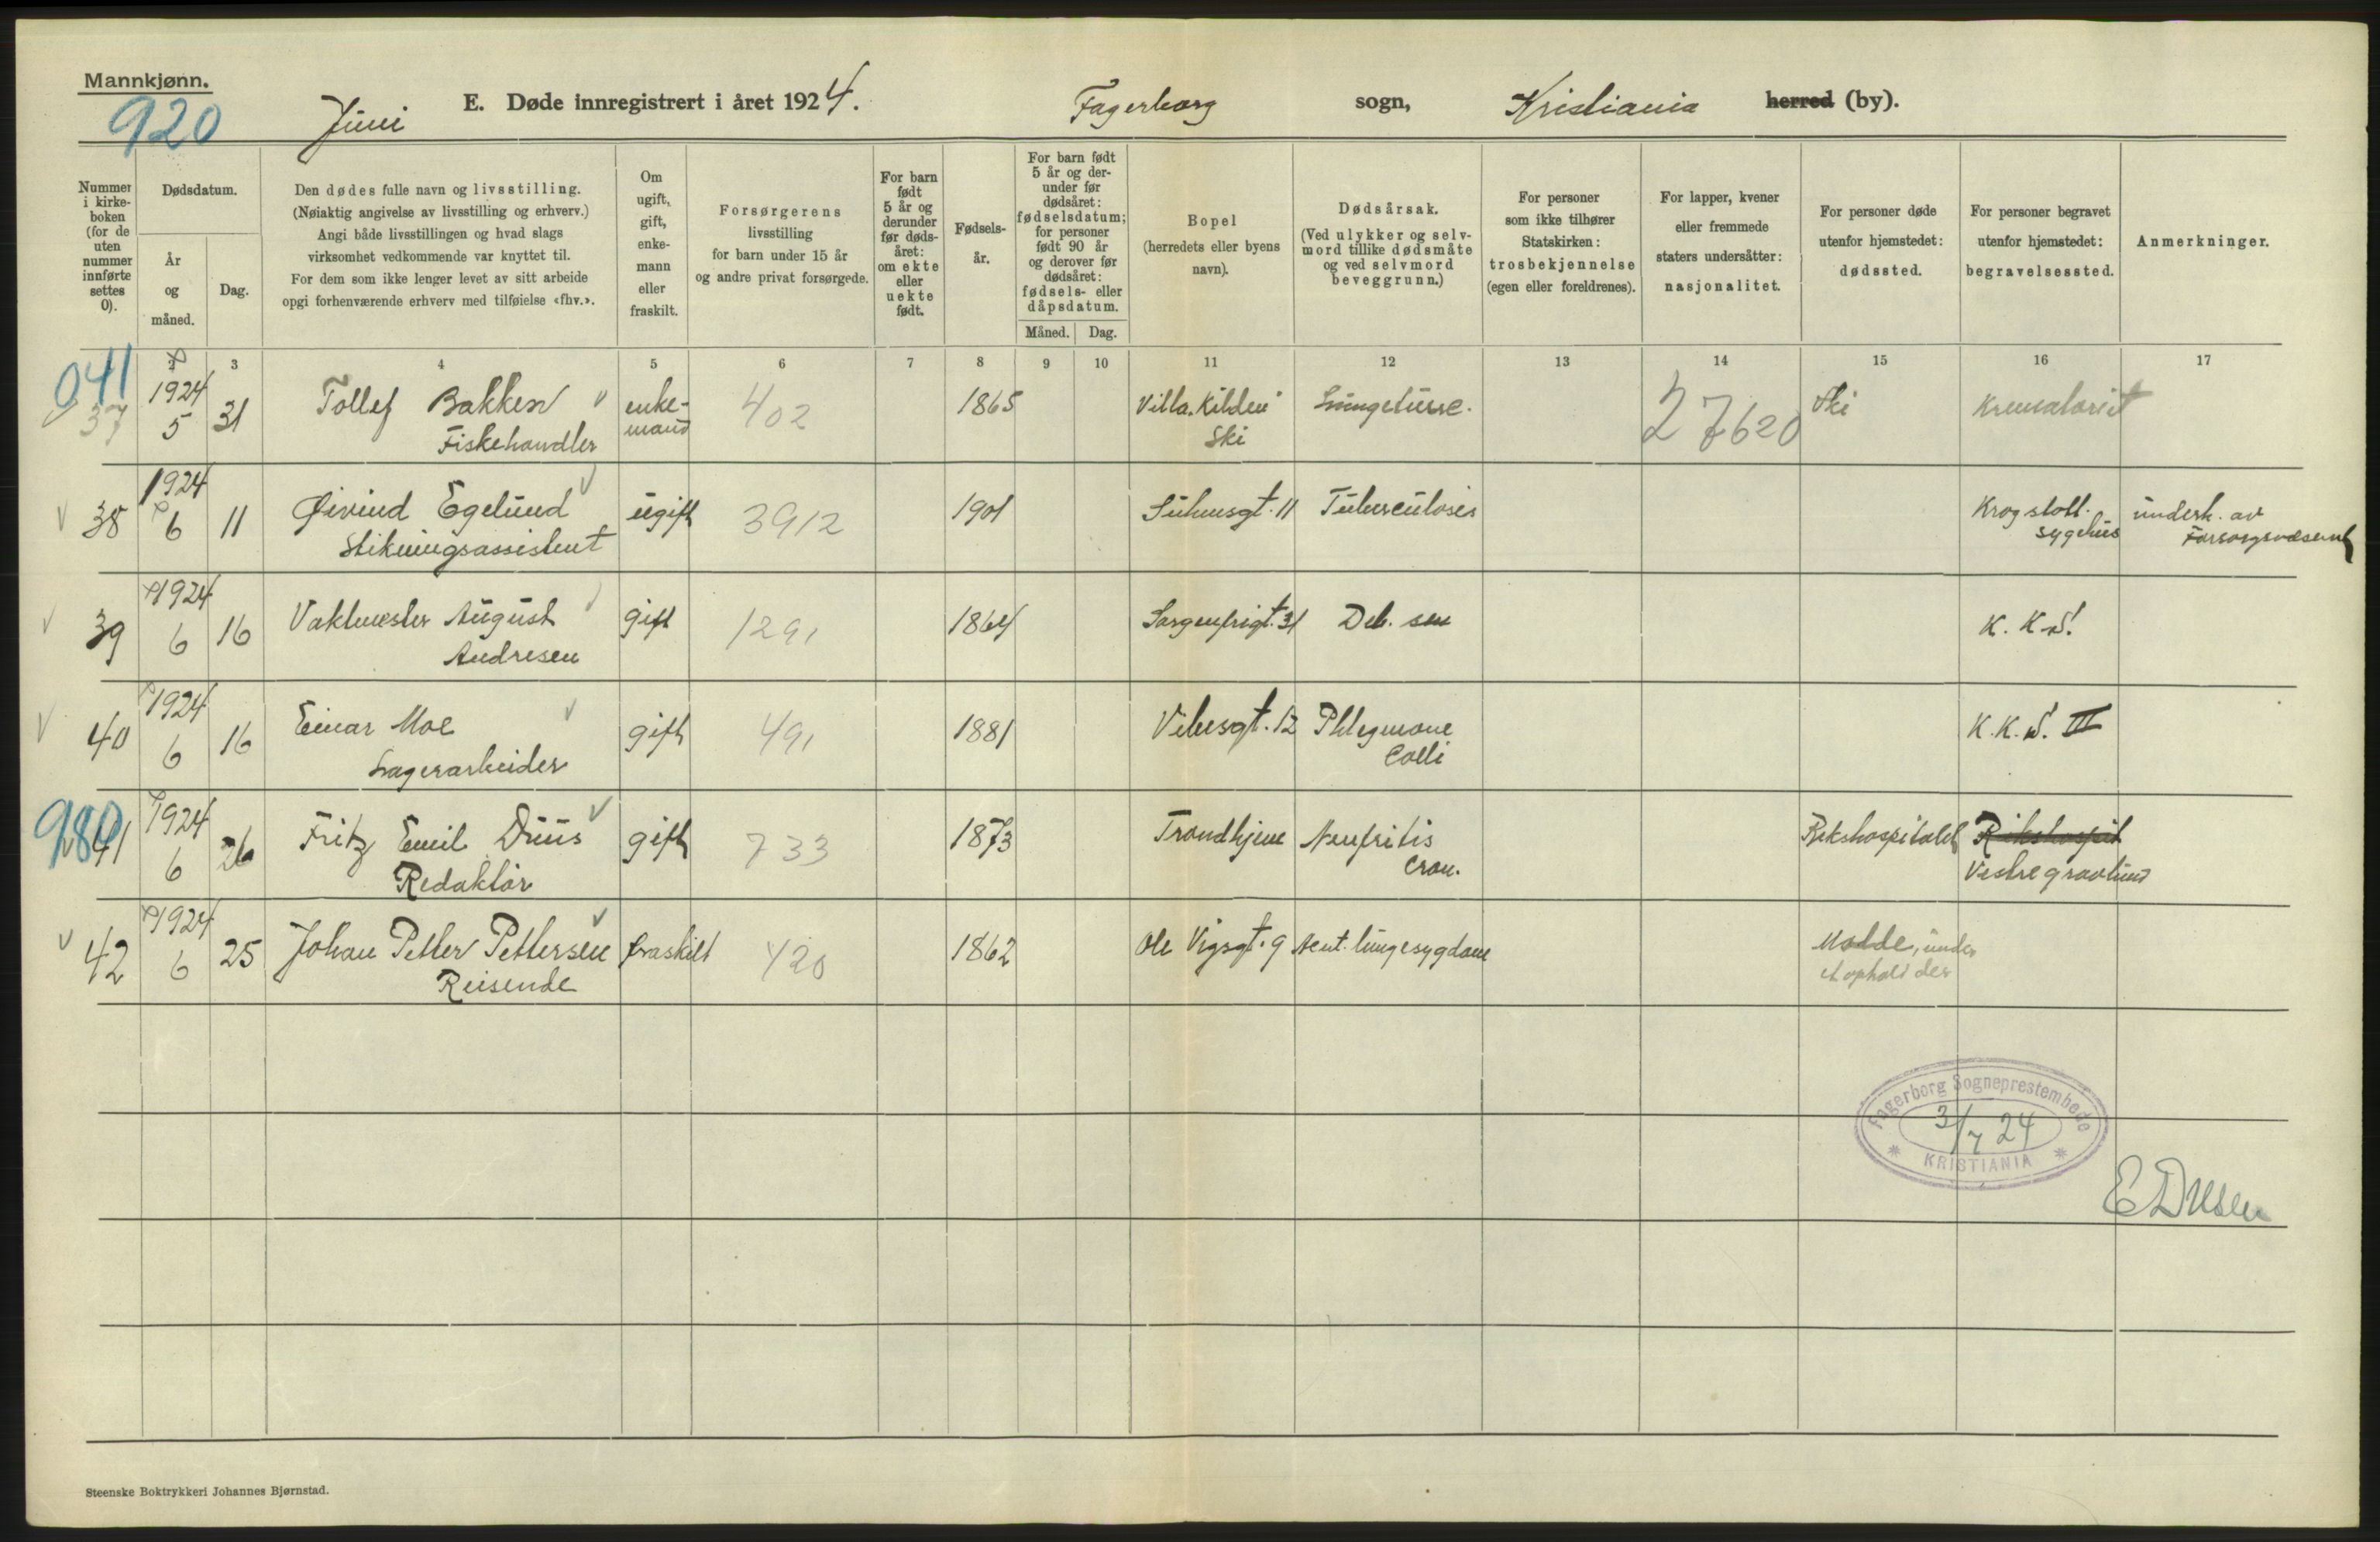 Mannkjønn.
920
Juni
E. Døde innregistrert i året 1924.
Fagerborg sogn, Kristiania herred (by).
Nummer i kirke- boken (for de uten nummer innførte settes 0).
Dødsdatum.
År og måned.
Dag.
Den dødes fulle navn og livsstilling.
(Nøiaktig angivelse av livsstilling og erhverv.)
Angi både livsstillingen og hvad slags
virksomhet vedkommende var knyttet til.
For dem som ikke lenger levet av sitt arbeide
opgi forhenværende erhverv med tilføielse «fhv.».
Om ugift, gift, enke- mann eller fraskilt.
Forsørgerens
livsstilling
for barn under 15 år
og andre privat forsørgede.
For barn født 5 år og derunder før døds- året: om ekte eller uekte født.
Fødsels- år.
For barn født 5 år og der- under før dødsåret: fødselsdatum; for personer født 90 år og derover før dødsåret: fødsels- eller dåpsdatum.
Måned. Dag.
Bopel
(herredets eller byens
navn).
Dødsårsak.
(Ved ulykker og selv-
mord tillike dødsmåte
og ved selvmord
beveggrunn.)
For personer
som ikke tilhører
Statskirken:
trosbekjennelse
(egen eller foreldrenes).
For lapper, kvener
eller fremmede
staters undersåtter:
nasjonalitet.
For personer døde
utenfor hjemstedet:
dødssted.
For personer begravet
utenfor hjemstedet:
begravelsessted.
Anmerkninger.
3 4 5 6 7 8 9 10 11 12 13 14 15 16 17
041
37 1924 5 31 Tollef Bakken enke- 402 1865 Villa Kilden Lungetusse. 27620 Ski Krematoriet
Fiskehandler mand Ski
38 1924 6 11 Øivind Egelund ugift 3912 1901 Suhmsgt. 11 Tuberculosis Krogstøtt. underh. av
Stikningsassistent sygehus Forsorgsvæsenet
39 1924 6 16 Vaktmester August gift 1291 1864 Sorgenfrigt. 31 Deb. sen K. K. S.
Andresen
40 1924 6 16 Einar Moe gift 491 1881 Vibesgt. 12 Phlegmone K. K. S. III
Lagerarbeider Colli
980
41 1924 6 26 Fritz Emil Duus gift 733 1873 Trondhjem Neufritis Rikshospitalet Rikshospit
Redaktør cron. Vestre gravlund
42 1924 6 25 Johan Petter Pettersen fraskilt 420 1862 Ole Vigsgt. 9 Acut. lungesygdom Molde, under
Reisende et ophold der
Fagerborg Sogneprestembede
3/7 24
KRISTIANIA
Steenske Boktrykkeri Johannes Bjørnstad.